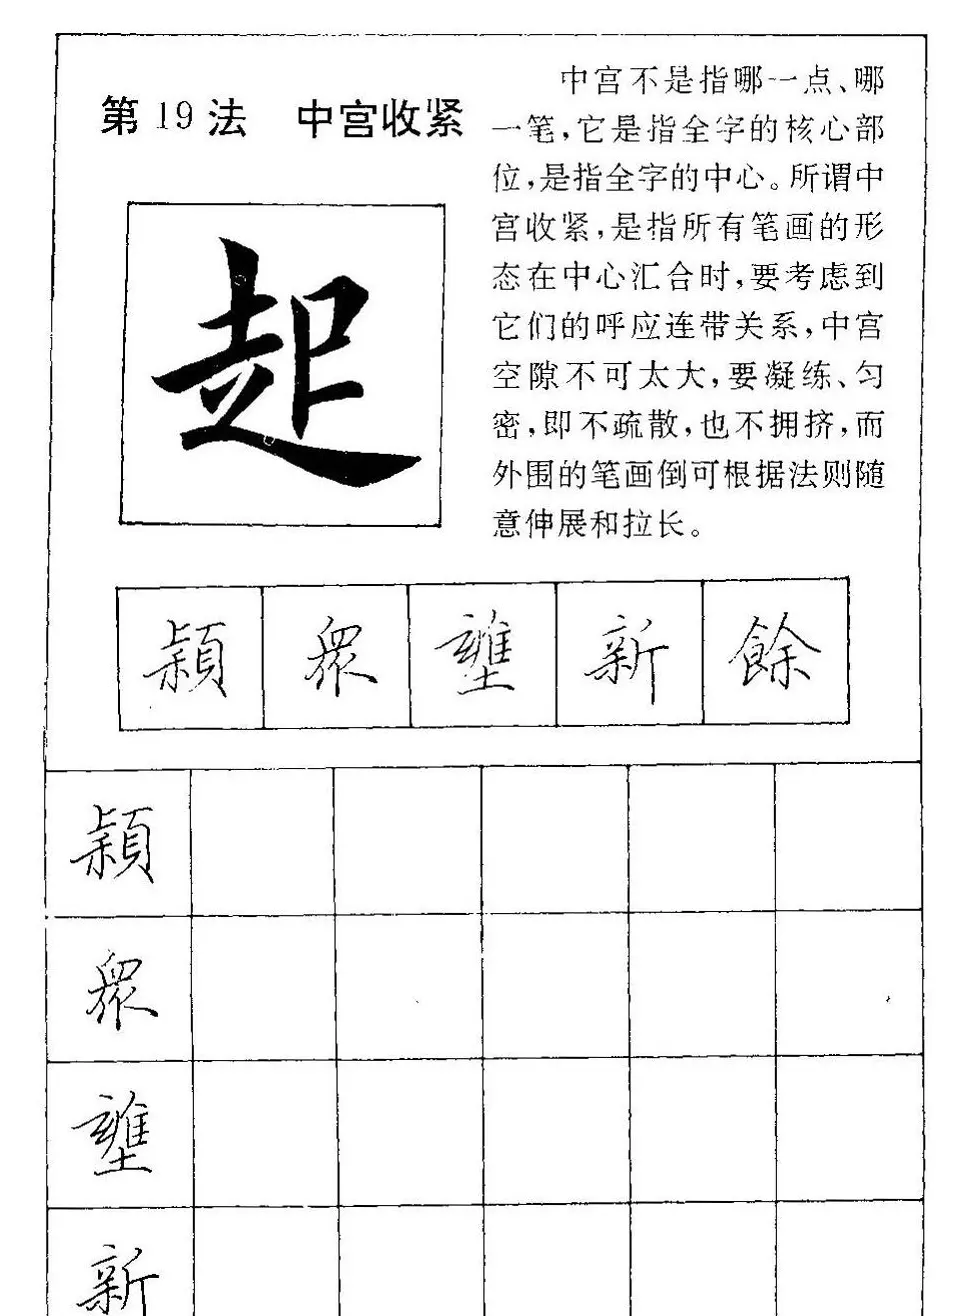 第19法 中宫收紧
中宫不是指哪一点、哪
一笔，它是指全字的核心部
位，是指全字的中心。所谓中
宫收紧，是指所有笔画的形
态在中心汇合时，要考虑到
它们的呼应连带关系，中宫
空隙不可太大，要凝练、匀
密，即不疏散，也不拥挤，而
外围的笔画倒可根据法则随
意伸展和拉长。
起
眾 新 餘
眾
新